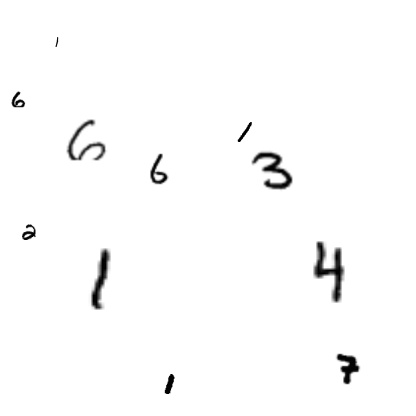 1
6
6 6 1 3
2
1 4
1 7